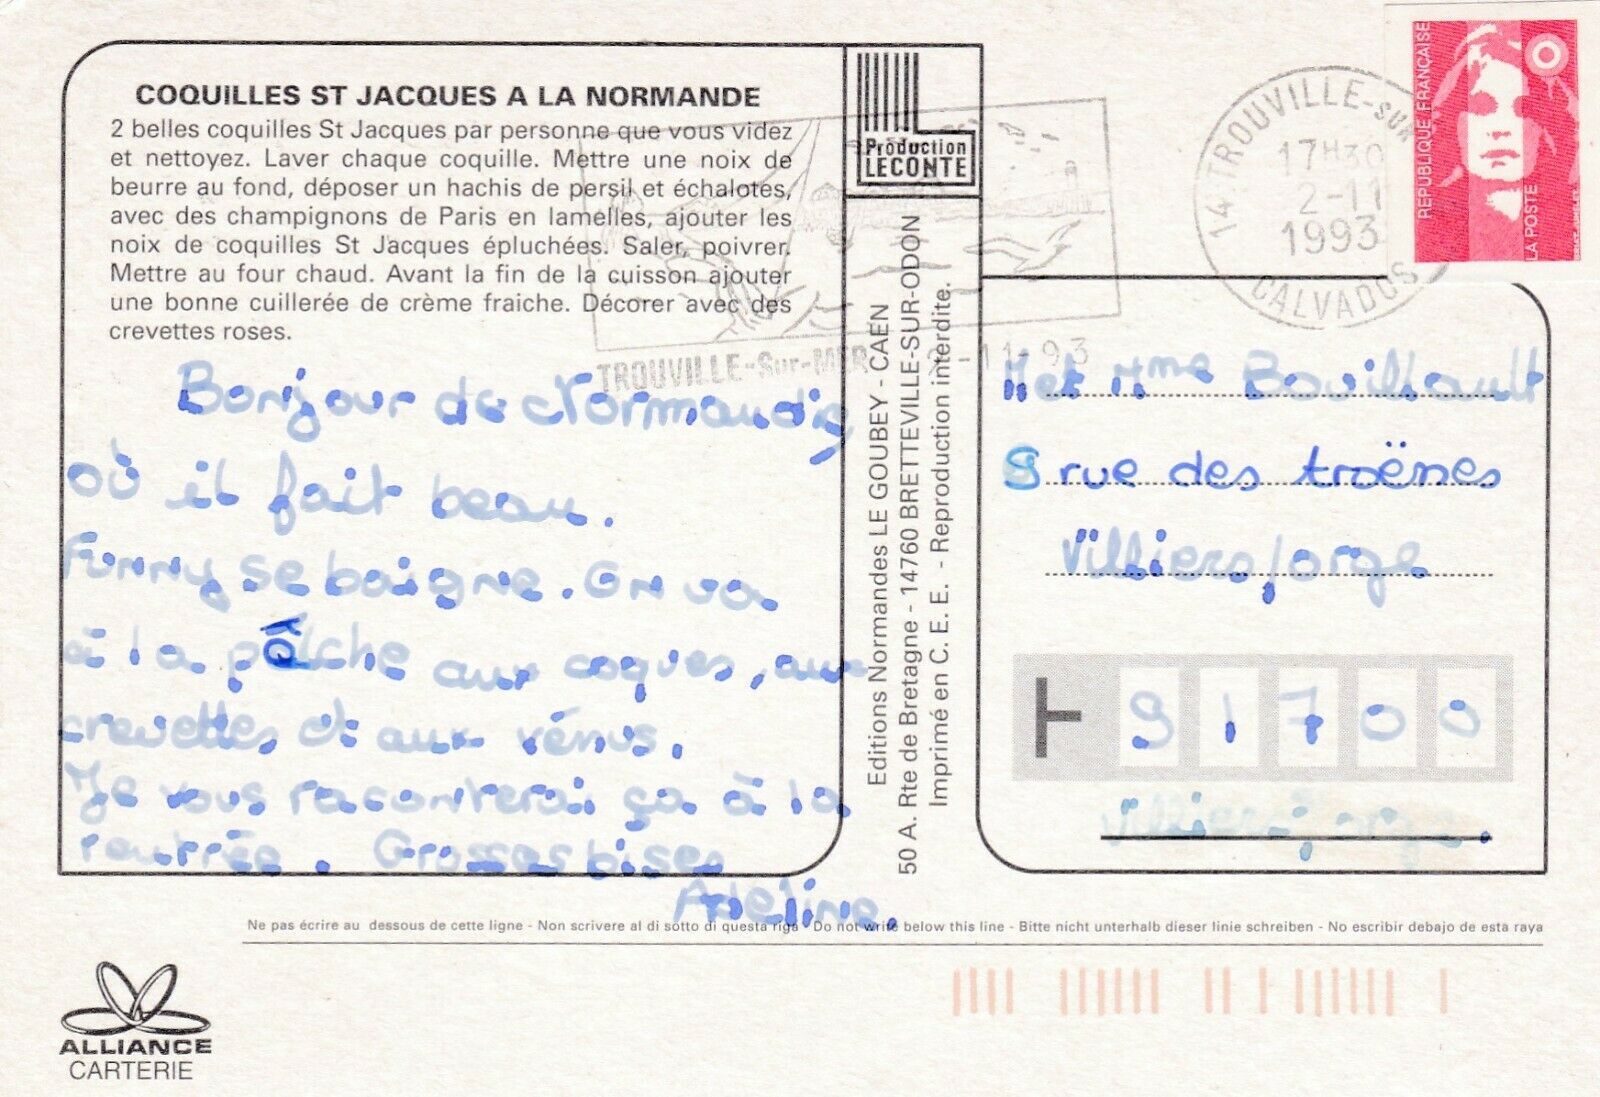 COQUILLES ST JACQUES A LA NORMANDE
2 belles coquilles St Jacques par personne que vous videz
et nettoyez. Laver chaque coquille. Mettre une noix de
beurre au fond, déposer un hachis de persil et échalotes,
avec des champignons de Paris en lamelles, ajouter les
noix de coquilles St Jacques épluchées. Saler, poivrer.
Mettre au four chaud. Avant la fin de la cuisson ajouter
une bonne cuillerée de crème fraiche. Décorer avec des
crevettes roses.
Bonjour de Normandie
où il fait beau.
Funny se baigne. On va
à la pêche aux coques, aux
crevettes et aux vénus.
Je vous raconterai ça à la
rentrée. Grosses bises
Adeline.
Production
LECONTE
Editions Normandes LE GOUBEY - CAEN
50 A. Rte de Bretagne - 14760 BRETTEVILLE-SUR-ODON
Imprimé en C. E. E. - Reproduction interdite.
TROUVILLE-Sur-MER 2-11-93
14 TROUVILLE-SUR
17H30
2-11
1993
CALVADOS
REPUBLIQUE FRANÇAISE
LA POSTE
M et Mme Bouillault
9 rue des troënes
Villiers/orge
91700
Villiers/orge.
Ne pas écrire au dessous de cette ligne - Non scrivere al di sotto di questa riga - Do not write below this line - Bitte nicht unterhalb dieser linie schreiben - No escribir debajo de esta raya
ALLIANCE
CARTERIE